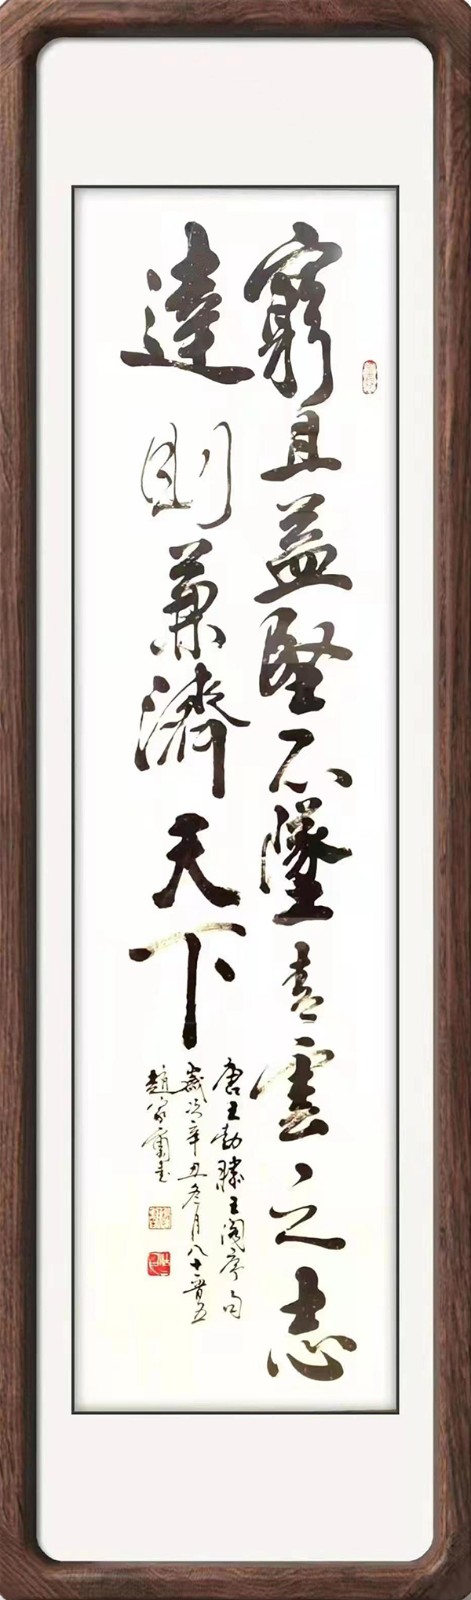 窮且益堅不墜青雲之志
達則兼濟天下
唐王勃滕王阁序句
歲次辛丑冬月八十晋五
趙家庸书